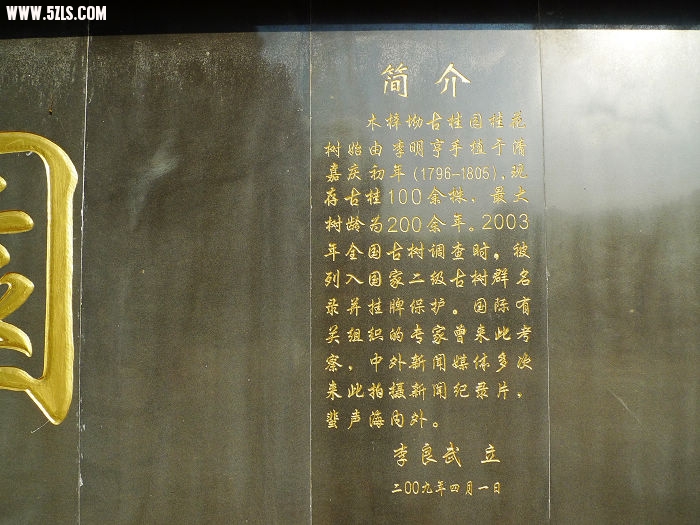 WWW.5ZLS.COM
简介
木梓坳古桂园桂花
树始由李明亨手植于清
嘉庆初年(1796-1805),现
存古桂100余株,最大
树龄为200余年。2003
年全国古树调查时,被
列入国家二级古树群名
录并挂牌保护。国际有
关组织的专家曾来此考
察,中外新闻媒体多次
来此拍摄新闻纪录片,
蜚声海内外。
李良武 立
二00九年四月一日